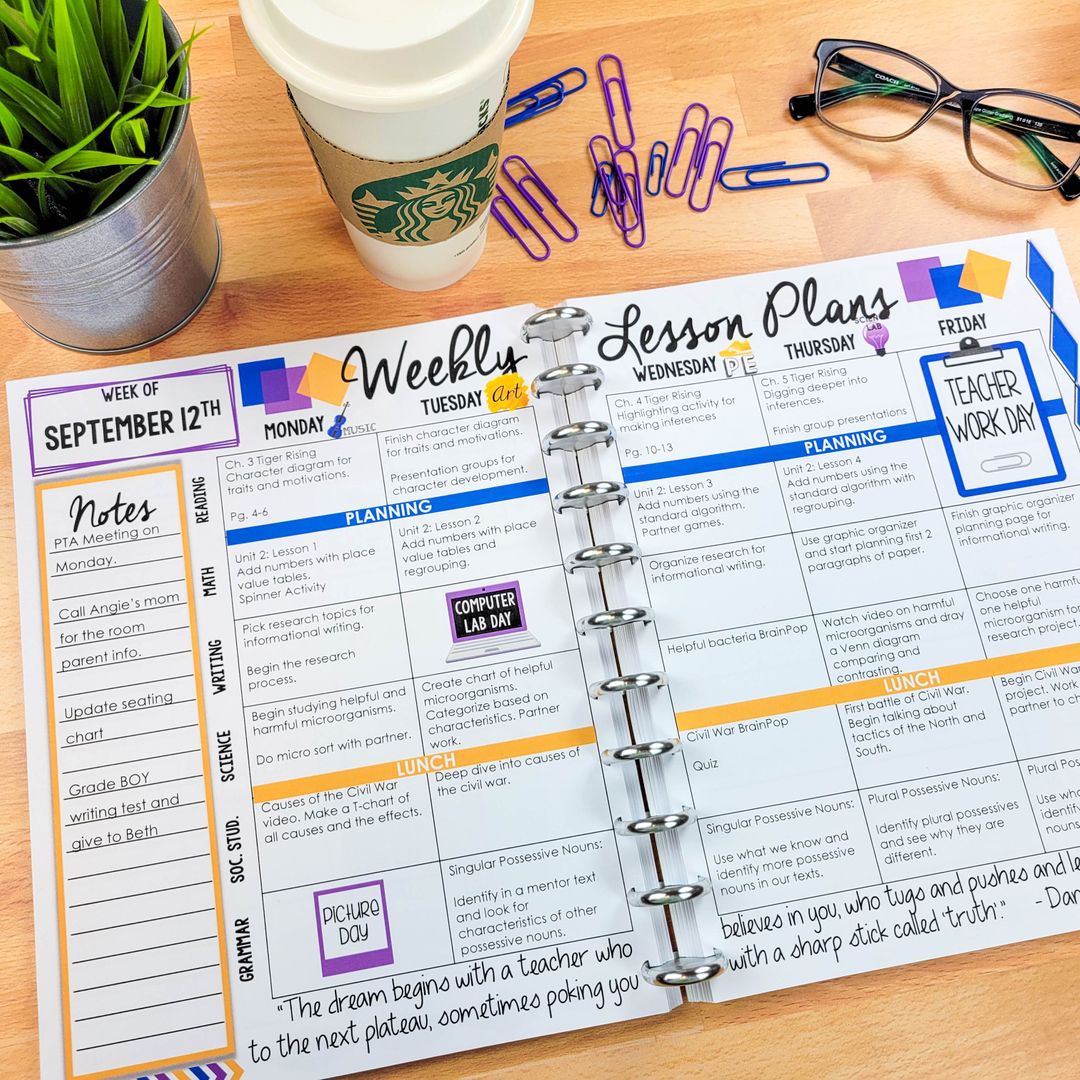 COACH
WEEK OF
SEPTEMBER 12TH
Weekly
Lesson Plans
MONDAY
MUSIC
TUESDAY
Art
WEDNESDAY
PE
THURSDAY
LAB
FRIDAY
Notes
PTA Meeting on
Monday.
Call Angie's mom
for the room
parent info.
Update seating
chart
Grade BOY
writing test and
give to Beth
READING
Ch. 3 Tiger Rising
Character diagram for
traits and motivations.
Pg. 4-6
Finish character diagram
for traits and motivations.
Presentation groups for
character development.
Ch. 4 Tiger Rising
Highlighting activity for
making inferences
Pg. 10-13
Ch. 5 Tiger Rising
Digging deeper into
inferences.
Finish group presentations
TEACHER
WORK DAY
PLANNING
PLANNING
MATH
Unit 2: Lesson 1
Add numbers with place
value tables.
Spinner Activity
Unit 2: Lesson 2
Add numbers with place
value tables and
regrouping.
Unit 2: Lesson 3
Add numbers using the
standard algorithm.
Partner games.
Unit 2: Lesson 4
Add numbers using the
standard algorithm with
regrouping.
WRITING
Pick research topics for
informational writing.
Begin the research
process.
COMPUTER
LAB DAY
Organize research for
informational writing.
Use graphic organizer
and start planning first 2
paragraphs of paper.
Finish graphic organizer
planning page for
informational writing.
SCIENCE
Begin studying helpful and
harmful microorganisms.
Do micro sort with partner.
Create chart of helpful
microorganisms.
Categorize based on
characteristics. Partner
work.
Helpful bacteria BrainPop
Watch video on harmful
microorganisms and dray
a Venn diagram
comparing and
contrasting.
Choose one harmfu
one helpful
microorganism for
research project.
LUNCH
LUNCH
SOC. STUD.
Causes of the Civil War
video. Make a T-chart of
all causes and the effects.
Deep dive into causes of
the civil war.
Civil War BrainPop
Quiz
First battle of Civil War.
Begin talking about
tactics of the North and
South.
Begin Civil War
project. Work
partner to ch
GRAMMAR
PICTURE
DAY
Singular Possessive Nouns:
Identify in a mentor text
and look for
characteristics of other
possessive nouns.
Singular Possessive Nouns:
Use what we know and
identify more possessive
nouns in our texts.
Plural Possessive Nouns:
Identify plural possessives
and see why they are
different.
Plural Pos
Use who
identify
nouns
"The dream begins with a teacher who believes in you, who tugs and pushes and le
to the next plateau, sometimes poking you with a sharp stick called 'truth'." - Dan